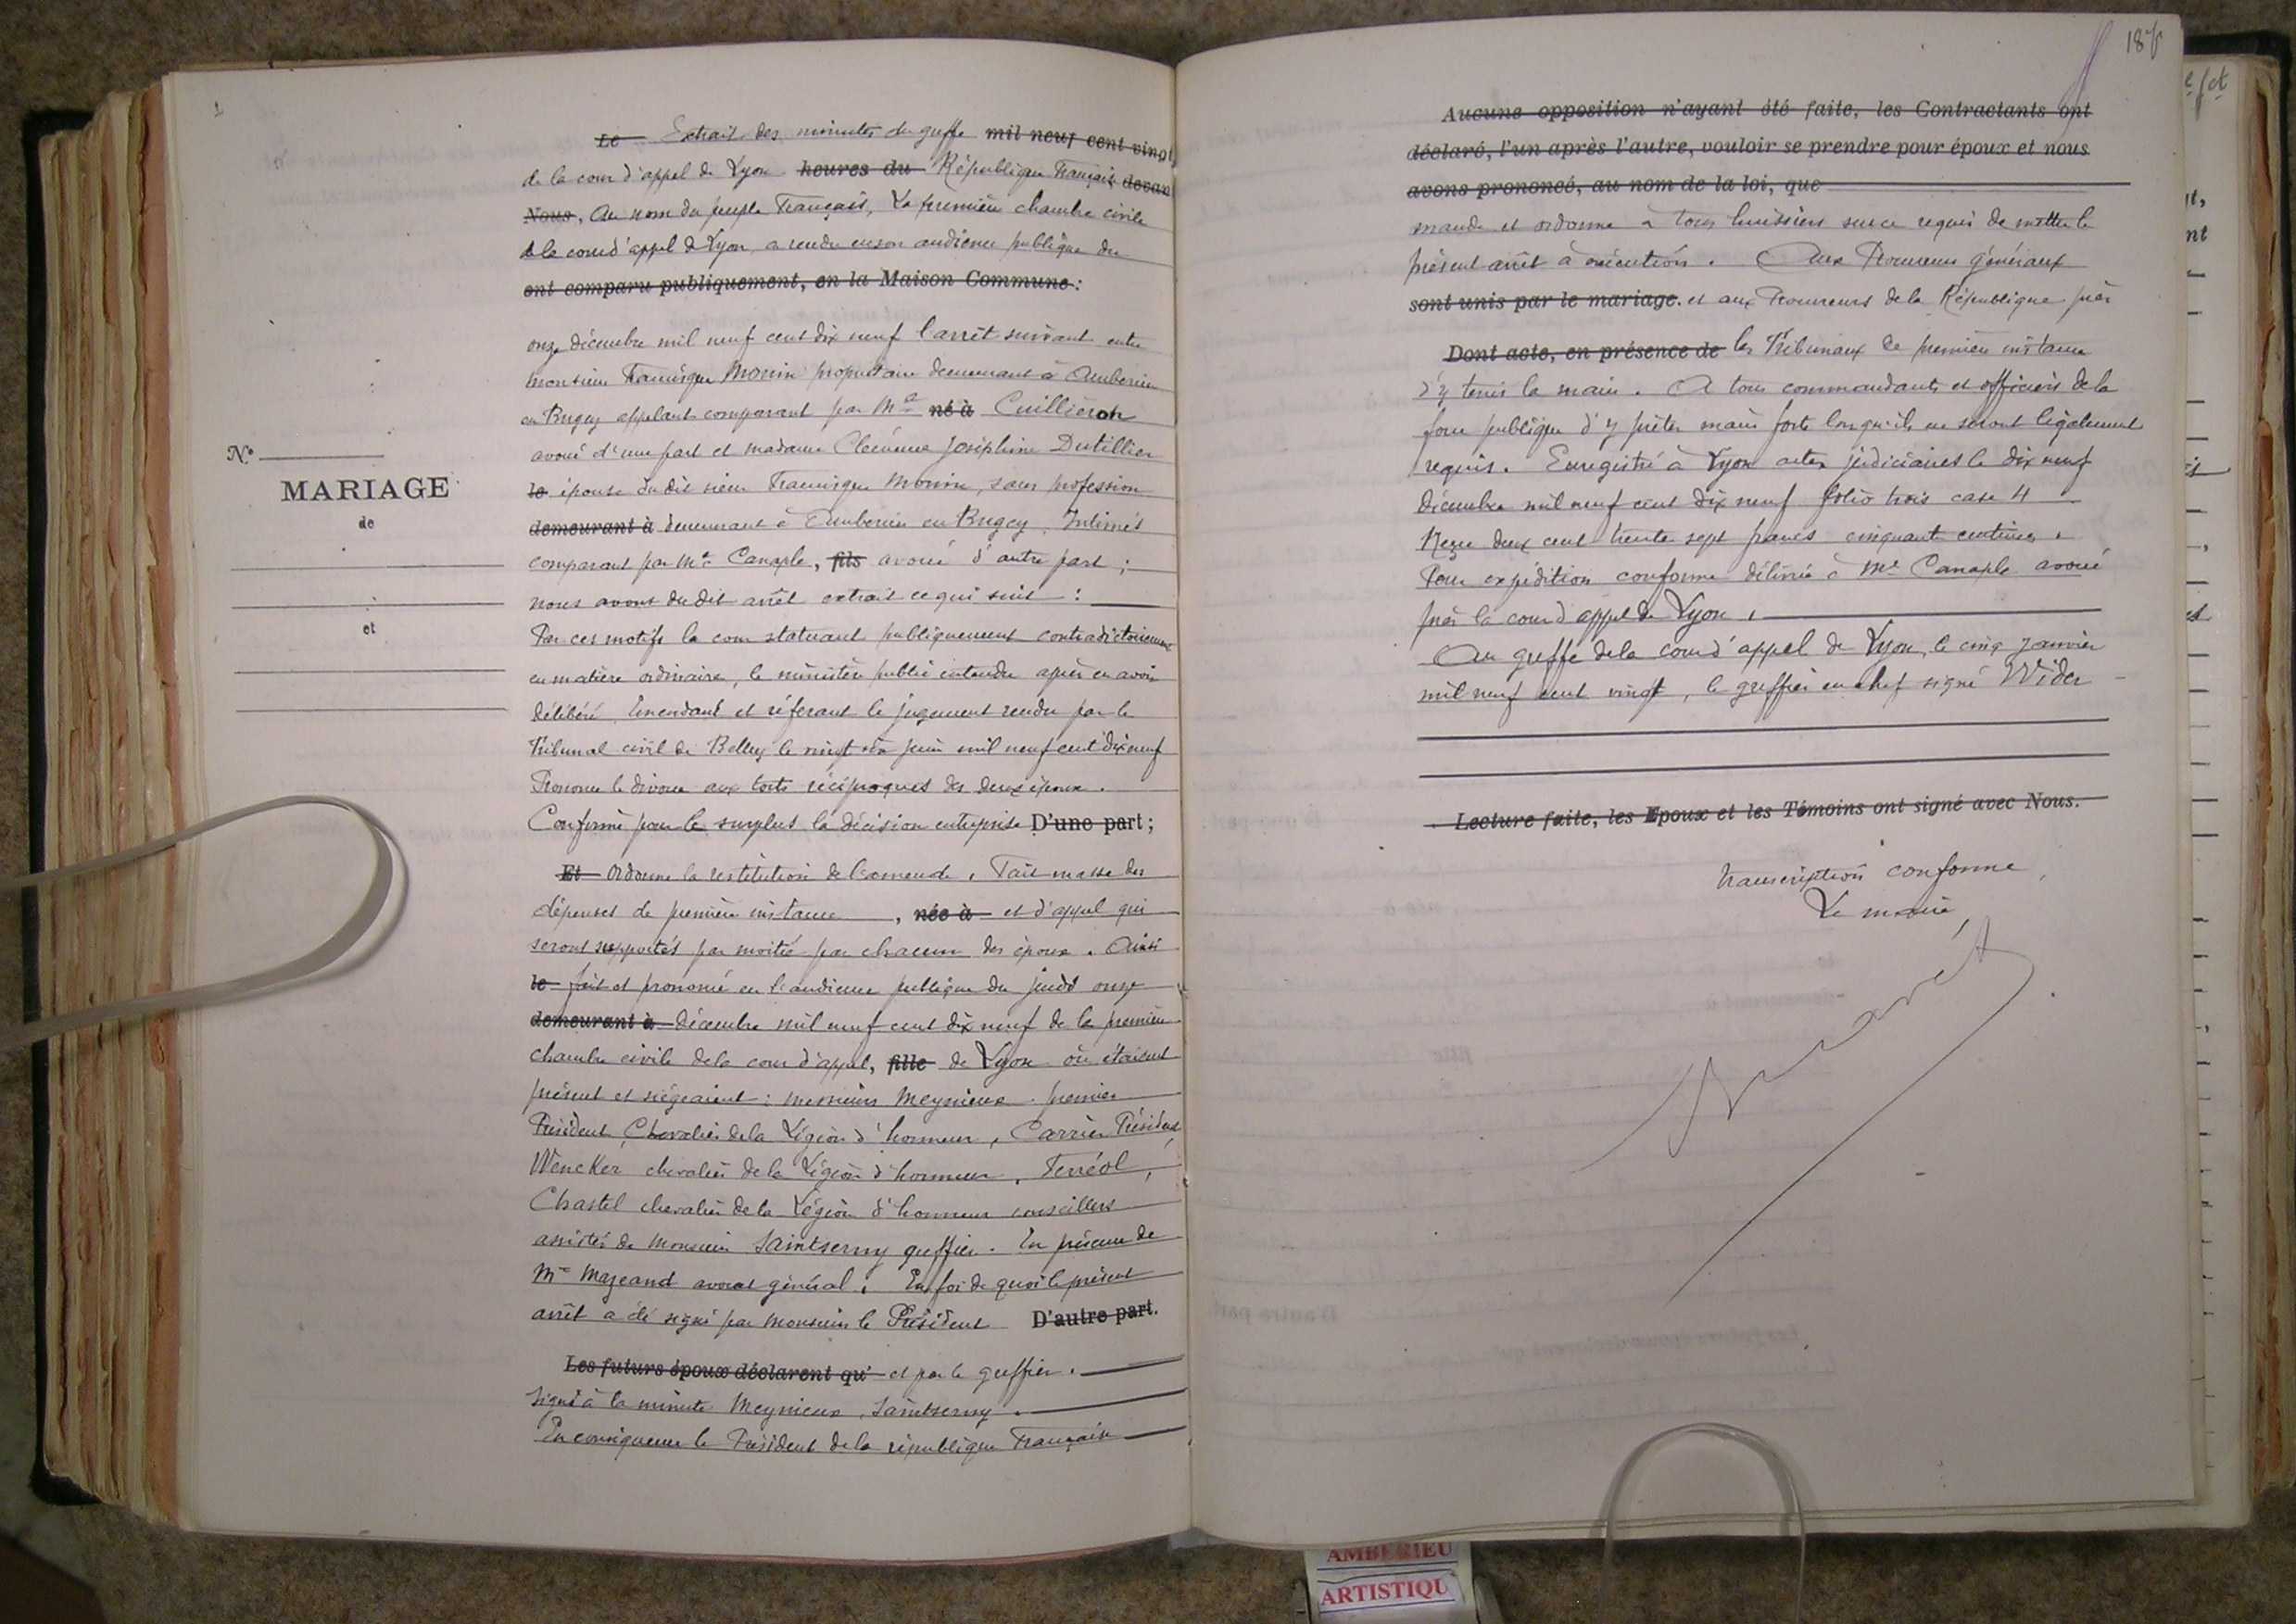 1
Le Extrait des minutes du greffe mil neuf cent vingt
de la cour d'appel de Lyon heures du République Française devant
Nous, Au nom du peuple Français, La première chambre civile
de la cour d'appel de Lyon a rendu en son audience publique du
ont comparu publiquement, en la Maison Commune :
onze décembre mil neuf cent dix neuf l'arrêt suivant entre
monsieur Francisque Monin propriétaire demeurant à Ambérieu
en Bugey appelant comparant par Me né à Cuilliéron
avoué d'une part et madame Clémence Joséphine Dutillier
le épouse du dit sieur Francisque Monin, sans profession
demeurant à demeurant à Ambérieu en Bugey. Intimés
comparant par Me Canaple, fils avoué d'autre part ;
nous avons du dit arrêt extrait ce qui suit :
Par ces motifs la cour statuant publiquement contradictoirement
en matière ordinaire, le ministère public entendu après en avoir
délibéré, Emendant et réferant le jugement rendu par le
Tribunal civil de Belley le vingt six juin mil neuf cent dix neuf
Prononce le divorce aux torts réciproques des deux époux.
Confirme pour le surplus la décision entreprise D'une part ;
Et Ordonne la restitution de l'amende. Fait masse des
dépenses de première instance , née à et d'appel qui
seront supportés par moitié par chacun des époux. Ainsi
le fait et prononcé en l'audience publique du jeudi onze
demeurant à décembre mil neuf cent dix neuf de la première
chambre civile de la cour d'appel, fille de Lyon où étaient
présent et siégeaient : messieurs Meynieux premier
Président Chevalier de la Légion d'honneur, Carrier Président
Wencker chevalier de la Légion d'honneur, Ferréol,
Chastel chevalier de la Légion d'honneur conseillers
assistés de Monsieur Saintserny greffier. En présence de
Mr Mazeaud avocat général. En foi de quoi le présent
arrêt a été signé par Monsieur le Président D'autre part.
Les futurs époux déclarent qu' et par le greffier.
Signé à la minute Meynieux, Saintserny.
En conséquence le Président de la république Française
N°
MARIAGE
de
et
187
Aucune opposition n'ayant été faite, les Contractants ont
déclaré, l'un après l'autre, vouloir se prendre pour époux et nous
avons prononcé, au nom de la loi, que
mande et ordonne à tous huissiers sur ce requis de mettre le
présent arrêt à exécution. Aux Procureurs généraux
sont unis par le mariage. et aux Procureurs de la République près
Dont acte, en présence de les Tribunaux de première instance
d'y tenir la main. A tous commandants et officiers de la
force publique d'y prêter main forte lorsqu'ils en seront légalement
requis. Enregistré à Lyon actes judiciaires le dix neuf
décembre mil neuf cent dix neuf folio trois case 4
Reçu deux cent trente sept francs cinquante centimes.
Pour expédition conforme délivrée à Me Canaple avoué
près la cour d'appel de Lyon.
Au greffe de la cour d'appel de Lyon, le cinq janvier
mil neuf cent vingt, le greffier en chef signé Wider
Lecture faite, les Epoux et les Témoins ont signé avec Nous.
transcription conforme,
Le maire,
AMBERIEU
ARTISTIQU